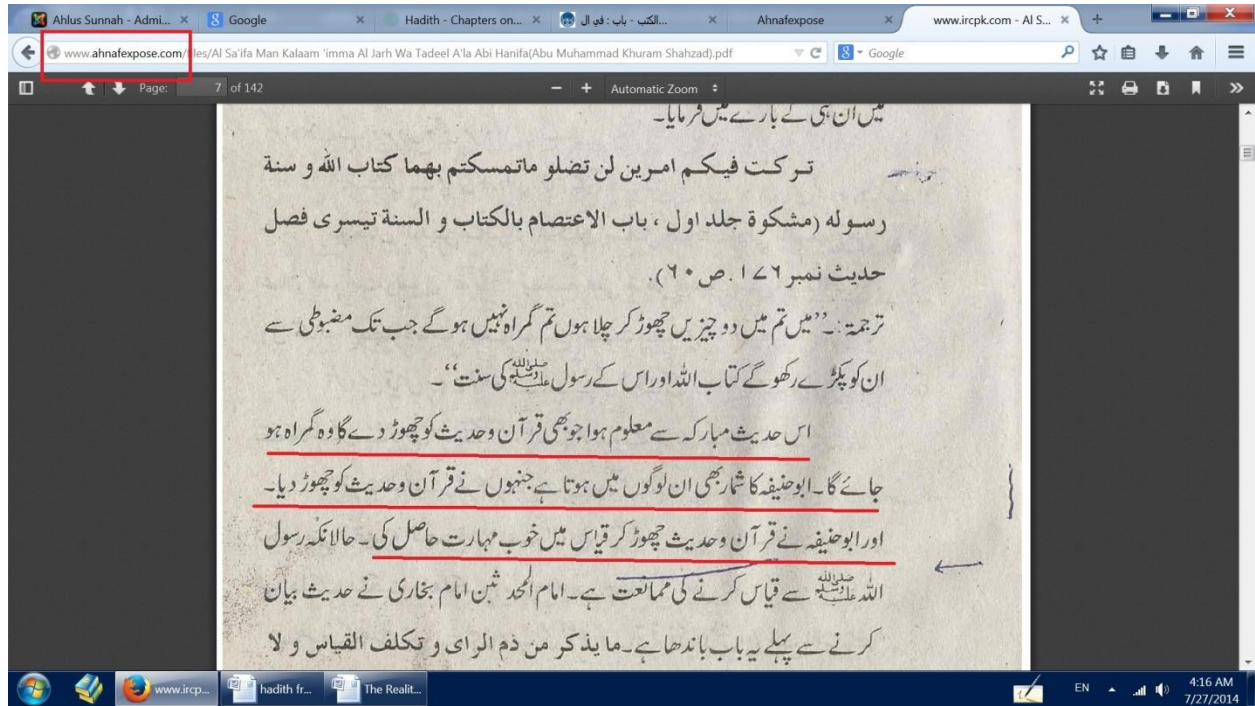 Ahlus Sunnah - Admi... × Google × Hadith - Chapters on... × الكتب - باب : في ال... × Ahnafexpose × www.ircpk.com - Al S... × +
www.ahnafexpose.com/files/Al Sa'ifa Man Kalaam 'imma Al Jarh Wa Tadeel A'la Abi Hanifa(Abu Muhammad Khuram Shahzad).pdf Google
Page: 7 of 142 − + Automatic Zoom
میں ان ہی کے بارے میں فرمایا۔
تركت فيكم امرين لن تضلو ماتمسكتم بهما كتاب الله و سنة
رسوله (مشكوة جلد اول ، باب الاعتصام بالكتاب و السنة تيسرى فصل
حديث نمبر ١٧٦. ص ٦٠).
ترجمۃ:۔’’میں تم میں دو چیزیں چھوڑ کر چلا ہوں تم گمراہ نہیں ہو گے جب تک مضبوطی سے
ان کو پکڑے رکھو گے کتاب اللہ اور اس کے رسول ﷺ کی سنت‘‘۔
اس حدیث مبارکہ سے معلوم ہوا جو بھی قرآن وحدیث کو چھوڑ دے گا وہ گمراہ ہو
جائے گا۔ ابوحنیفہ کا شمار بھی ان لوگوں میں ہوتا ہے جنہوں نے قرآن وحدیث کو چھوڑ دیا۔
اور ابوحنیفہ نے قرآن وحدیث چھوڑ کر قیاس میں خوب مہارت حاصل کی۔ حالانکہ رسول
اللہ ﷺ سے قیاس کرنے کی ممانعت ہے۔ امام المحد ثین امام بخاری نے حدیث بیان
کرنے سے پہلے یہ باب باندھا ہے۔ ما يذكر من ذم الراى و تكلف القياس و لا
www.ircp... hadith fr... The Realit... EN 4:16 AM
7/27/2014